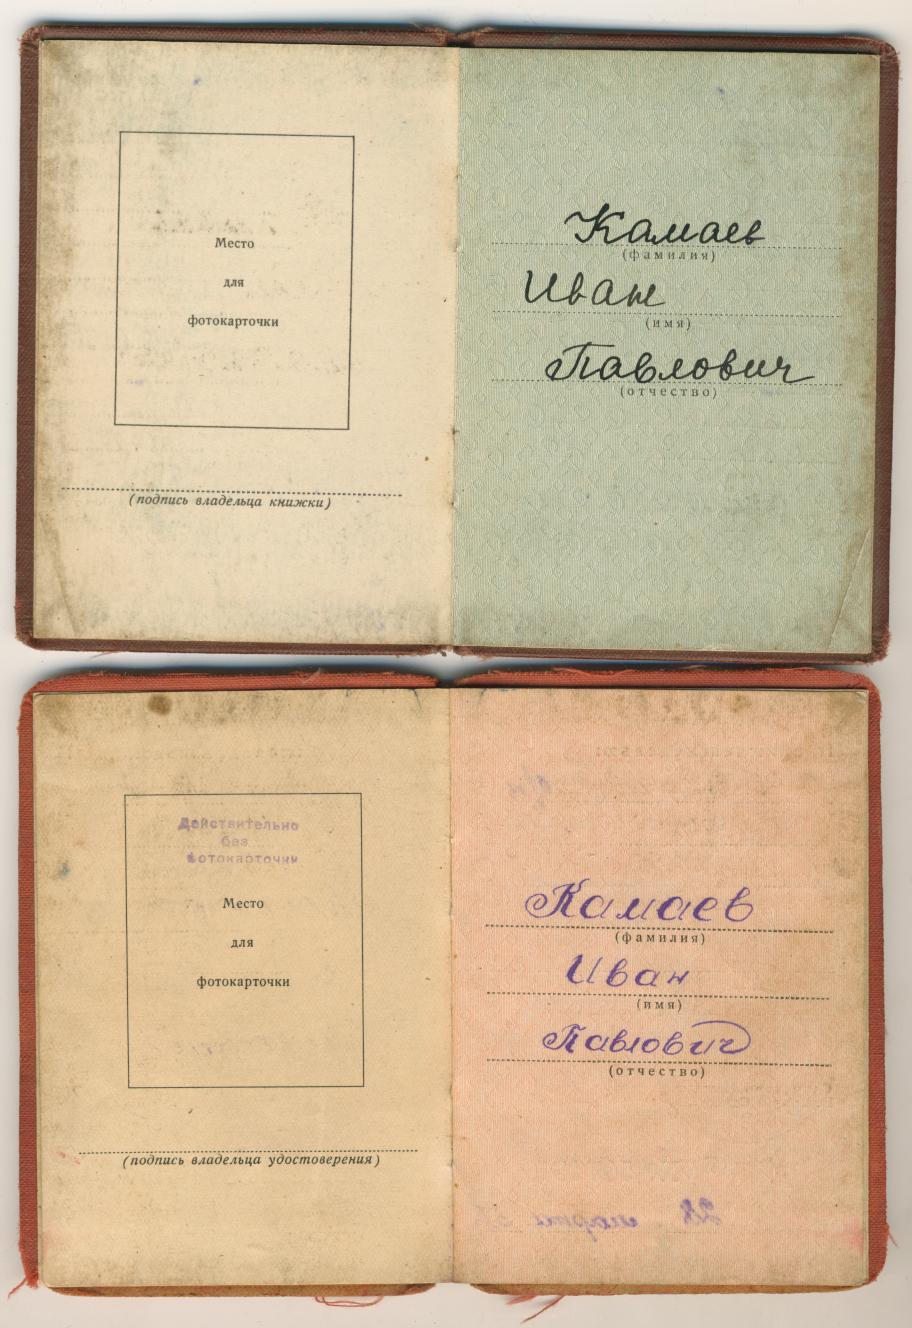 Место
для
фотокарточки
(подпись владельца книжки)
Камаев
(фамилия)
Иван
(имя)
Павлович
(отчество)
Действительно
без
фотокарточки
Место
для
фотокарточки
(подпись владельца удостоверения)
Камаев
(фамилия)
Иван
(имя)
Павлович
(отчество)
28 марта